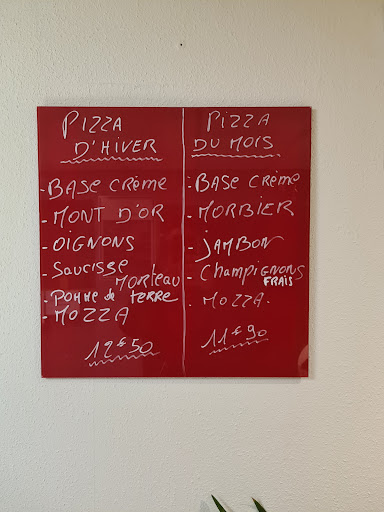 PIZZA
D'HIVER
- BASE CRÈME
- MONT D'OR
- OIGNONS
- SAUCISSE
MORTEAU
- POMME de terre
- MOZZA
12€50
PIZZA
DU MOIS
- BASE CRÈME
- MORBIER
- JAMBON
- CHAMPIGNONS
FRAIS
- MOZZA.
11€90